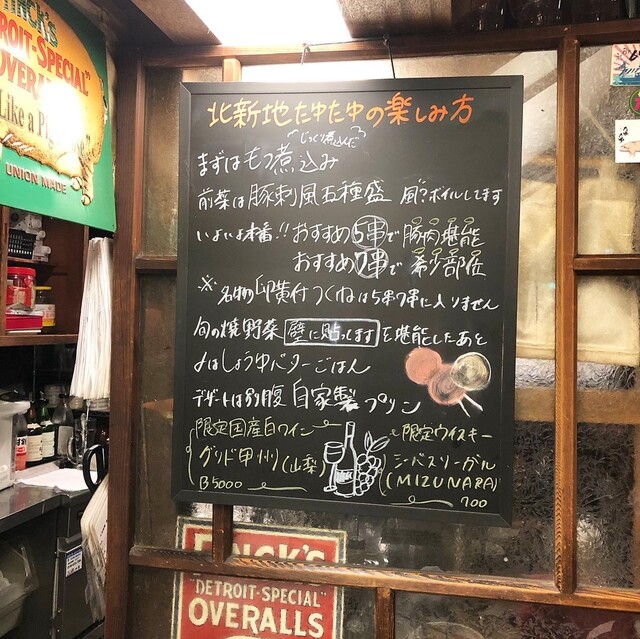 FINCK'S
"DETROIT-SPECIAL"
OVERALLS
Like a P
UNION MADE
北新地たゆたゆの楽しみ方
じっくり煮込んだ
まずはもつ煮込み
前菜は豚刺風五種盛 風?ボイルしてます
いよいよ本番!!おすすめ5串で豚肉堪能
おすすめ7串で希少部位
※名物卵黄付つくねは5串7串に入りません
旬の焼野菜 壁に貼ってます を堪能したあと
〆はしょうゆバターごはん
デザートは別腹 自家製プリン
限定国産白ワイン
グリド甲州(山梨)
B5000
限定ウイスキー
シーバスリーガル
(MIZUNARA)
700
FINCK'S
"DETROIT-SPECIAL"
OVERALLS